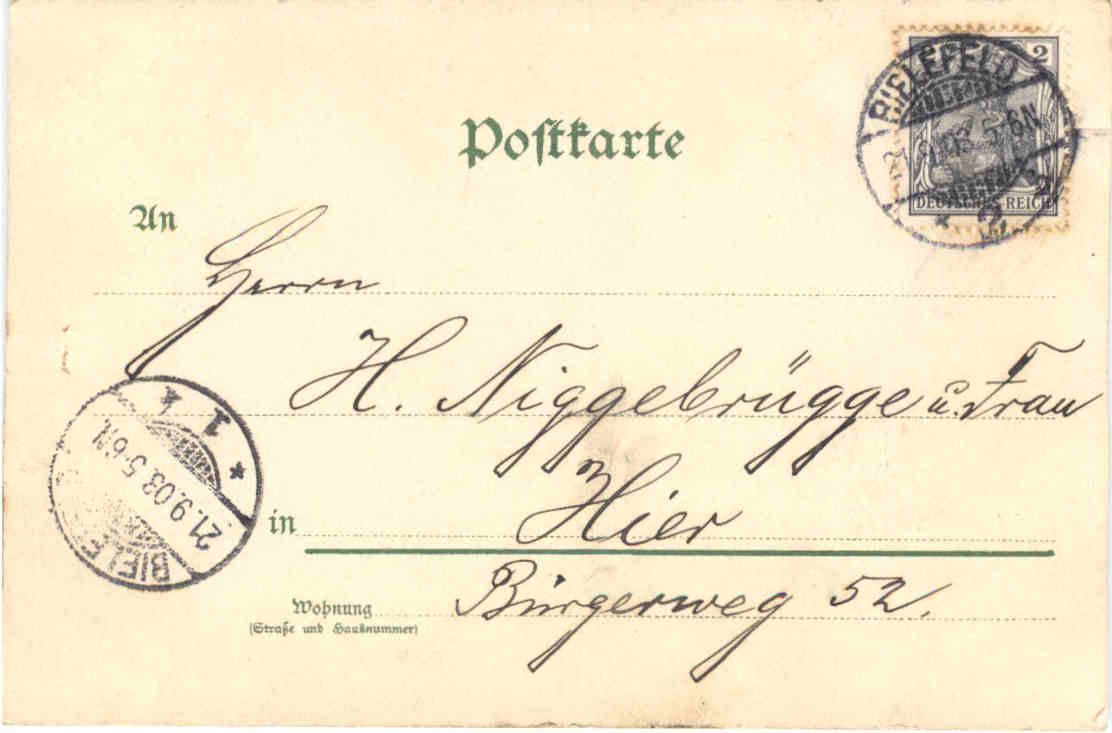 Postkarte
2
BIELEFELD
21.9.03. 5-6N
* 2
DEUTSCHES REICH
An
Herrn
H. Niggebrügge u. Frau
in Hier
Wohnung Bürgerweg 52.
(Straße und Hausnummer)
* 1 *
21.9.03. 5-6N.
BIELE